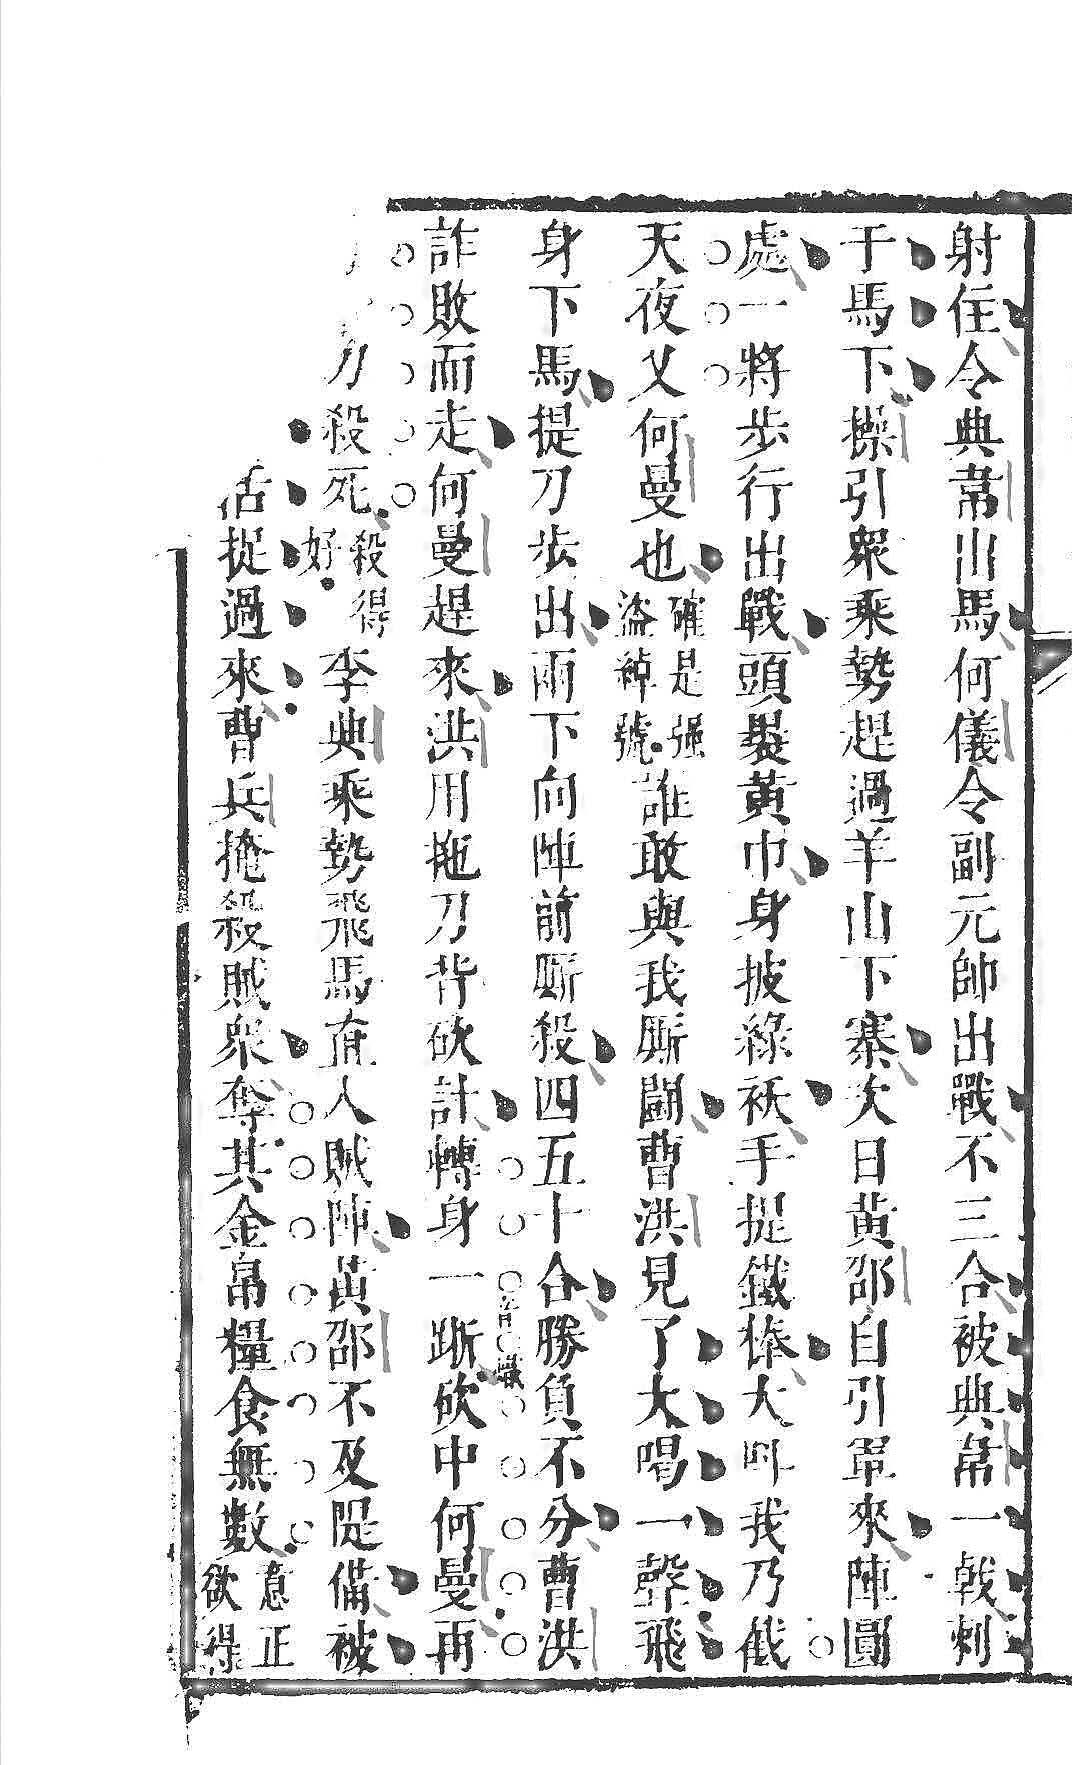 射住令典韋出馬何儀令副元帥出戰不三合被典韋一戟刺
于馬下操引衆乘勢趕過羊山下寨次日黄邵自引軍來陣圓
處一將步行出戰頭褁黄巾身披綠袄手提鐵棒大呌我乃截
天夜叉何曼也確是强盗綽號誰敢與我厮鬭曹洪見了大喝一聲飛
身下馬提刀步出兩下向陣前厮殺四五十合勝負不分曹洪
詐敗而走何曼趕來洪用拖刀背砍計轉身一踅砍中何曼再
刀殺死殺得好李典乘勢飛馬直入賊陣黄邵不及隄備被
活捉過來曹兵掩殺賊衆奪其金帛糧食無數意正欲得